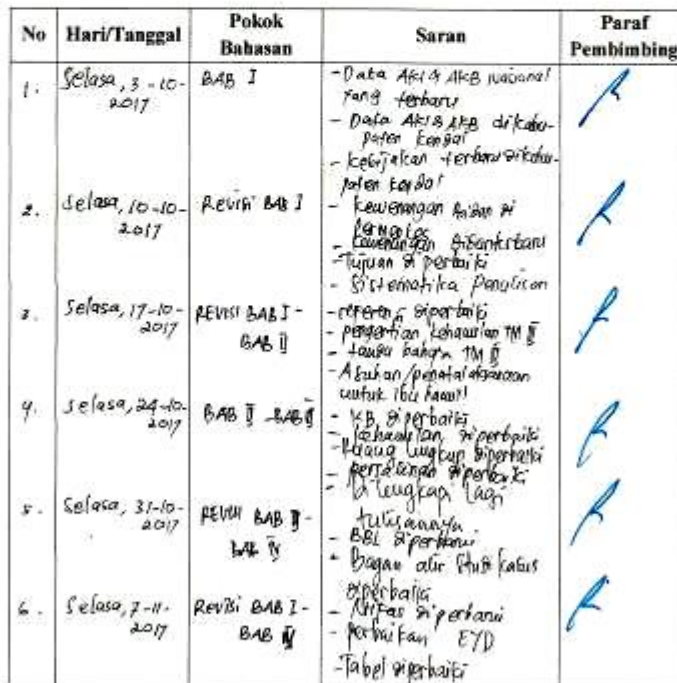 No Hari/Tanggal Pokok Bahasan Saran Paraf Pembimbing
1. Selasa, 3-10-2017 BAB I
- Data AKI & AKB nasional
yang terbaru
- Data AKI & AKB dikabu-
paten Kendal
- Kebijakan terbaru dikabu-
paten Kendal
2. Selasa, 10-10-2017 Revisi BAB I
- Kewenangan Bidan di
Permenkes
- Kewenangan
- Tujuan diperbaiki
- Sistematika Penulisan
3. Selasa, 17-10-2017 REVISI BAB I - BAB II
- diperbaiki
- pengertian kehamilan TM III
- bahaya TM III
- Asuhan/penatalaksanaan
untuk ibu hamil
4. Selasa, 24-10-2017 BAB II - BAB
- KB diperbaiki
- Kehamilan diperbaiki
- Ruang lingkup diperbaiki
- persalinan diperbaiki
5. Selasa, 31-10-2017 REVISI BAB - BAB IV
- Di lengkapi lagi
tulisannya
- BBL
- Bagan alir studi kasus
diperbaiki
6. Selasa, 7-11-2017 Revisi BAB I - BAB
- Nifas
- perbaikan EYD
- Tabel diperbaiki